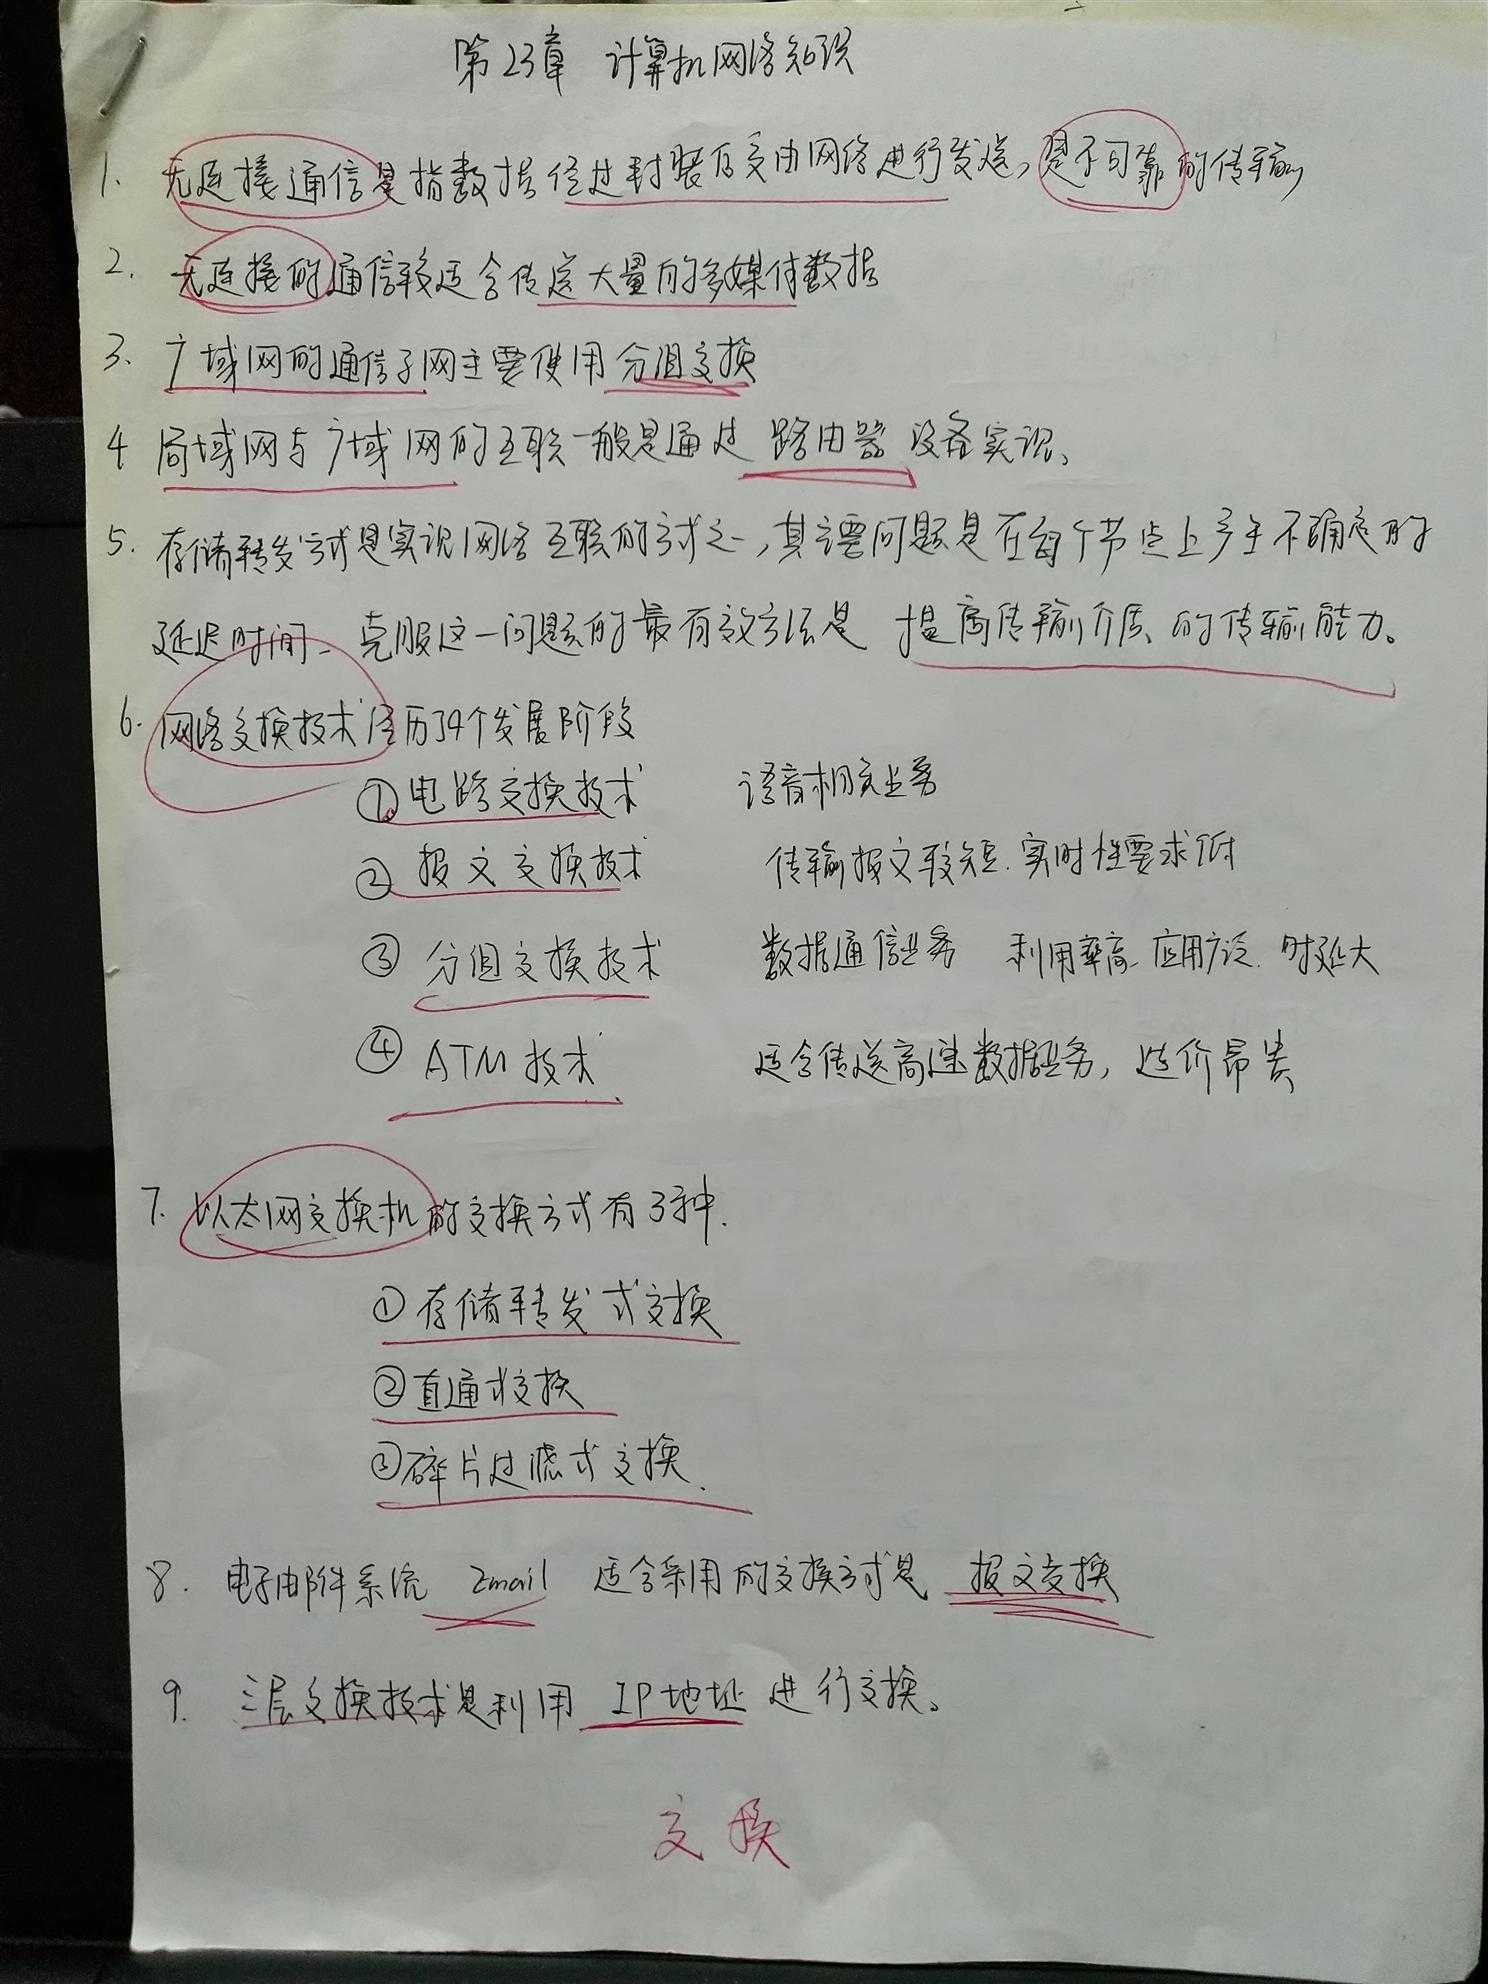 第23章 计算机网络知识
1. 无连接通信是指数据经过封装后交由网络进行发送,是不可靠的传输
2. 无连接的通信较适合传送大量的多媒体数据
3. 广域网的通信子网主要使用分组交换
4 局域网与广域网的互联一般是通过 路由器 设备实现、
5. 存储转发方式是实现网络互联的方式之一,其主要问题是在每个节点上产生不确定的
延迟时间、克服这一问题的最有效方法是 提高传输介质的传输能力。
6. 网络交换技术经历了4个发展阶段
① 电路交换技术 语音相关业务
② 报文交换技术 传输报文较短.实时性要求低
③ 分组交换技术 数据通信业务 利用率高 应用广泛. 时延大
④ ATM技术 适合传送高速数据业务, 造价昂贵
7. 以太网交换机的交换方式有3种.
①存储转发式交换
②直通式交换
③碎片过滤式交换.
8. 电子邮件系统 Email 适合采用的交换方式是 报文交换
9. 三层交换技术是利用 IP地址 进行交换。
交换